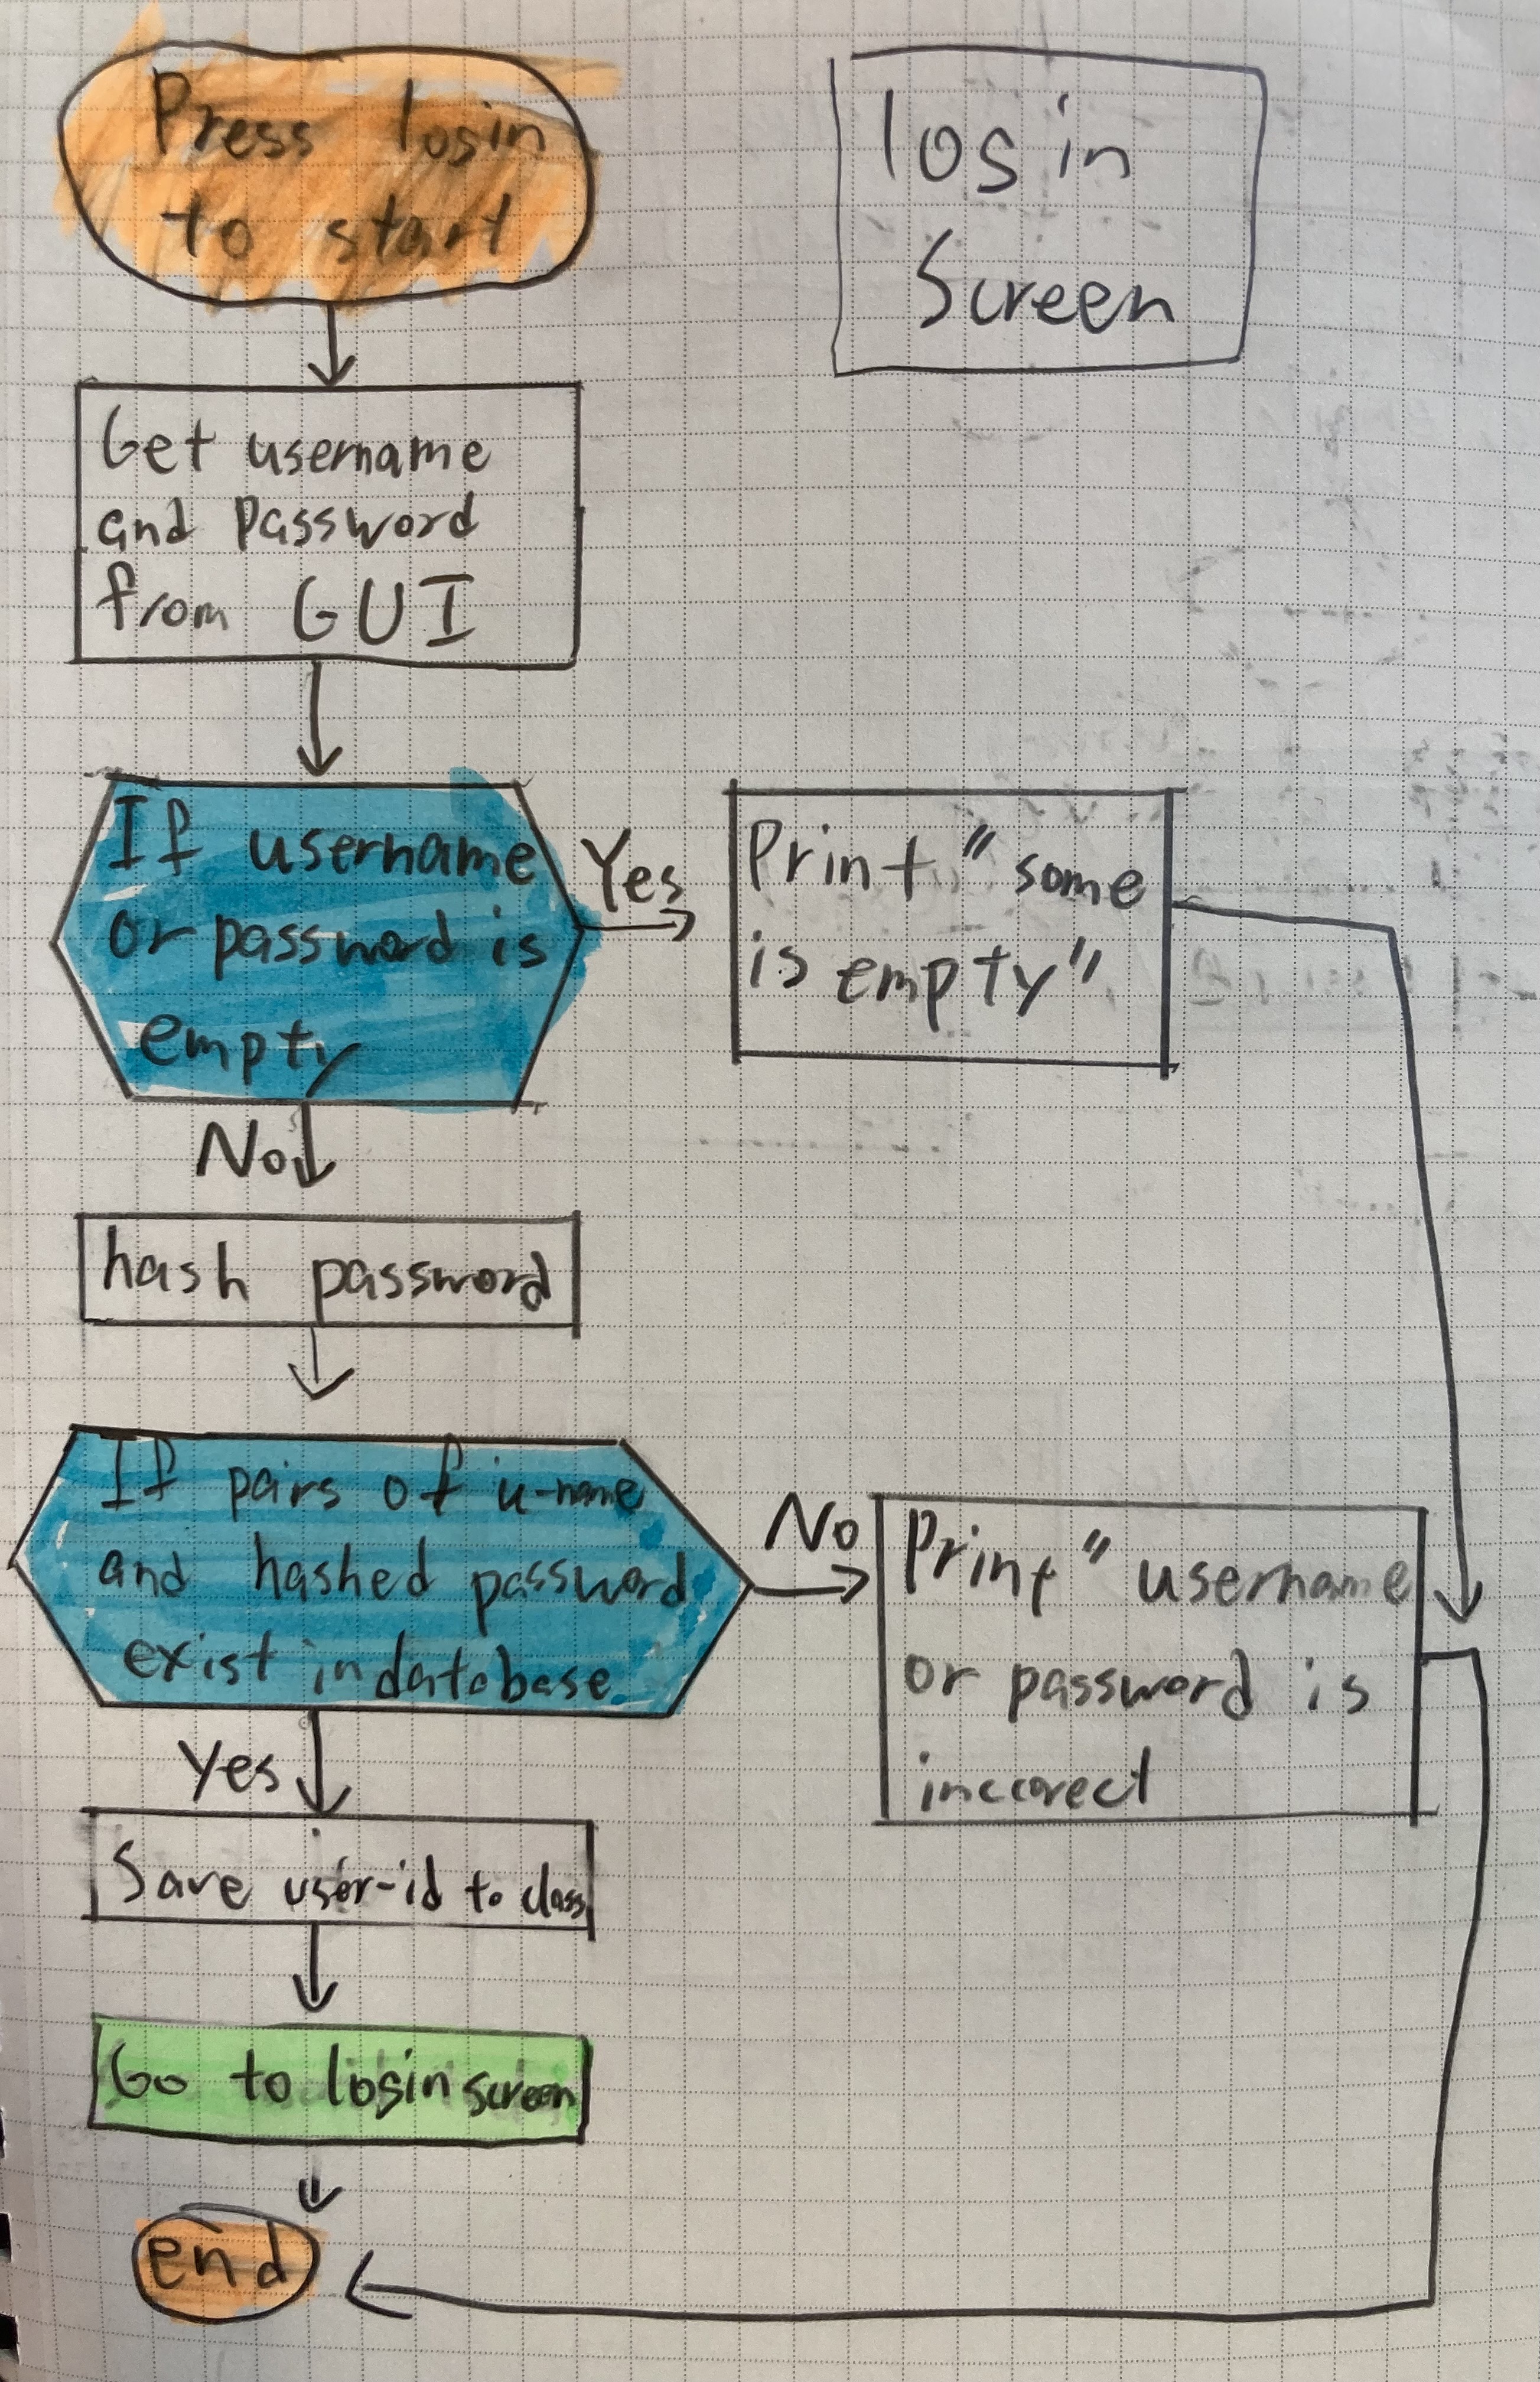 Press login
to start
login
Screen
Get username
and Password
from GUI
If username
or password is
empty
Yes
Print "some
is empty"
No
hash password
If pairs of u-name
and hashed password
exist in database
No
Print "username
or password is
incorrect
Yes
Save user-id to class
Go to login screen
end